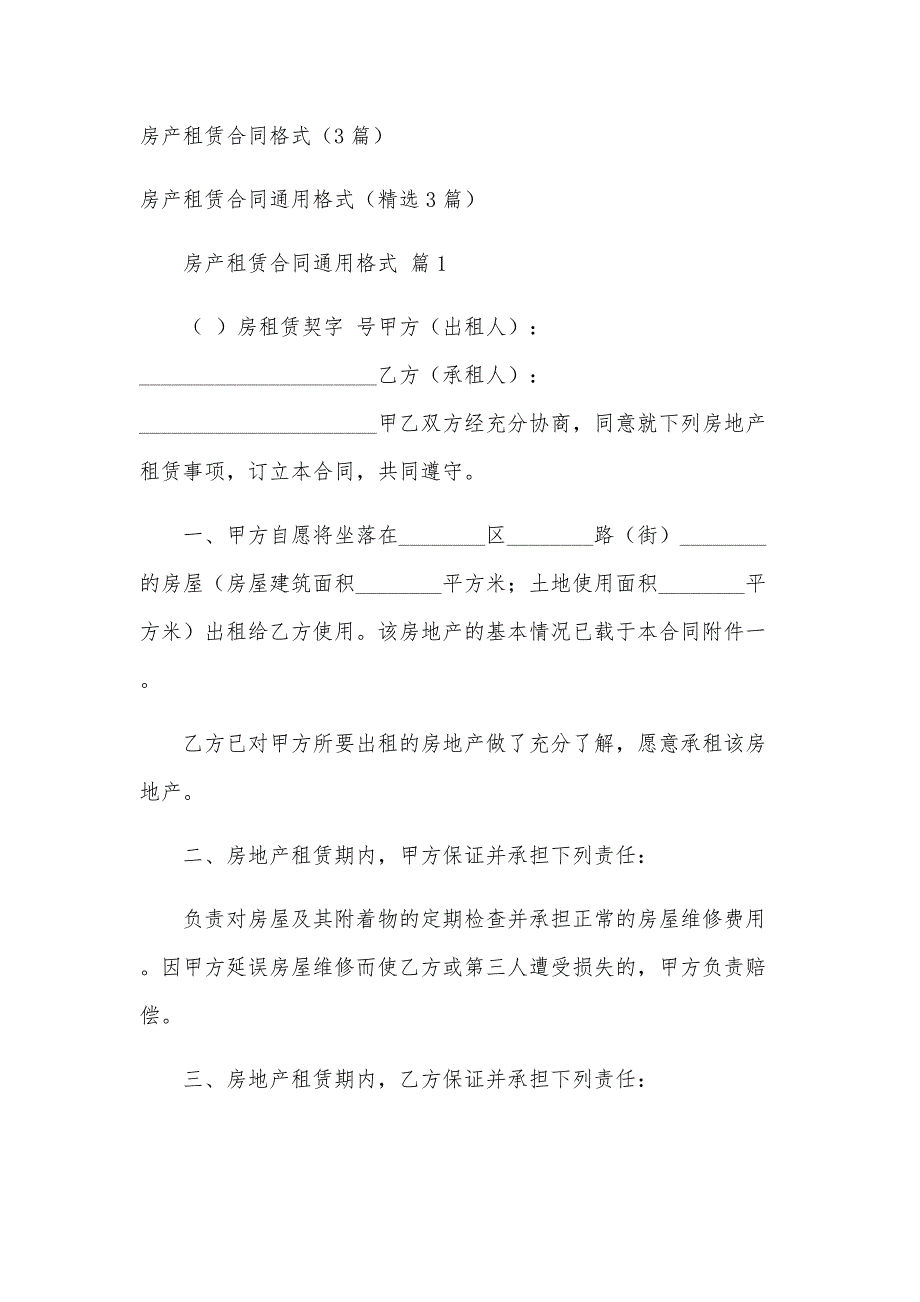 房产租赁合同格式（3篇）
房产租赁合同通用格式（精选3篇）
房产租赁合同通用格式 篇1
（ ）房租赁契字 号甲方（出租人）：
______________________乙方（承租人）：
______________________甲乙双方经充分协商，同意就下列房地产
租赁事项，订立本合同，共同遵守。
一、甲方自愿将坐落在________区________路（街）________
的房屋（房屋建筑面积________平方米；土地使用面积________平
方米）出租给乙方使用。该房地产的基本情况已载于本合同附件一
。
乙方已对甲方所要出租的房地产做了充分了解，愿意承租该房
地产。
二、房地产租赁期内，甲方保证并承担下列责任：
负责对房屋及其附着物的定期检查并承担正常的房屋维修费用
。因甲方延误房屋维修而使乙方或第三人遭受损失的，甲方负责赔
偿。
三、房地产租赁期内，乙方保证并承担下列责任：